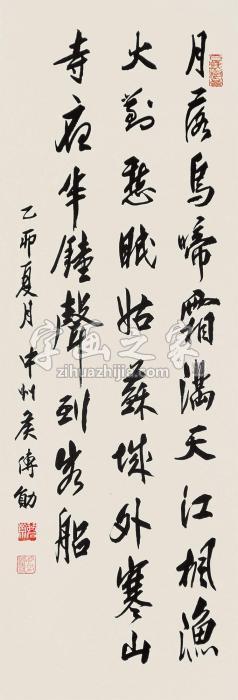 月落烏啼霜滿天江楓漁
火對愁眠姑蘇城外寒山
寺夜半鐘聲到客船
乙卯夏月中州侯傳勛
字画之家
zihuazhijie.com